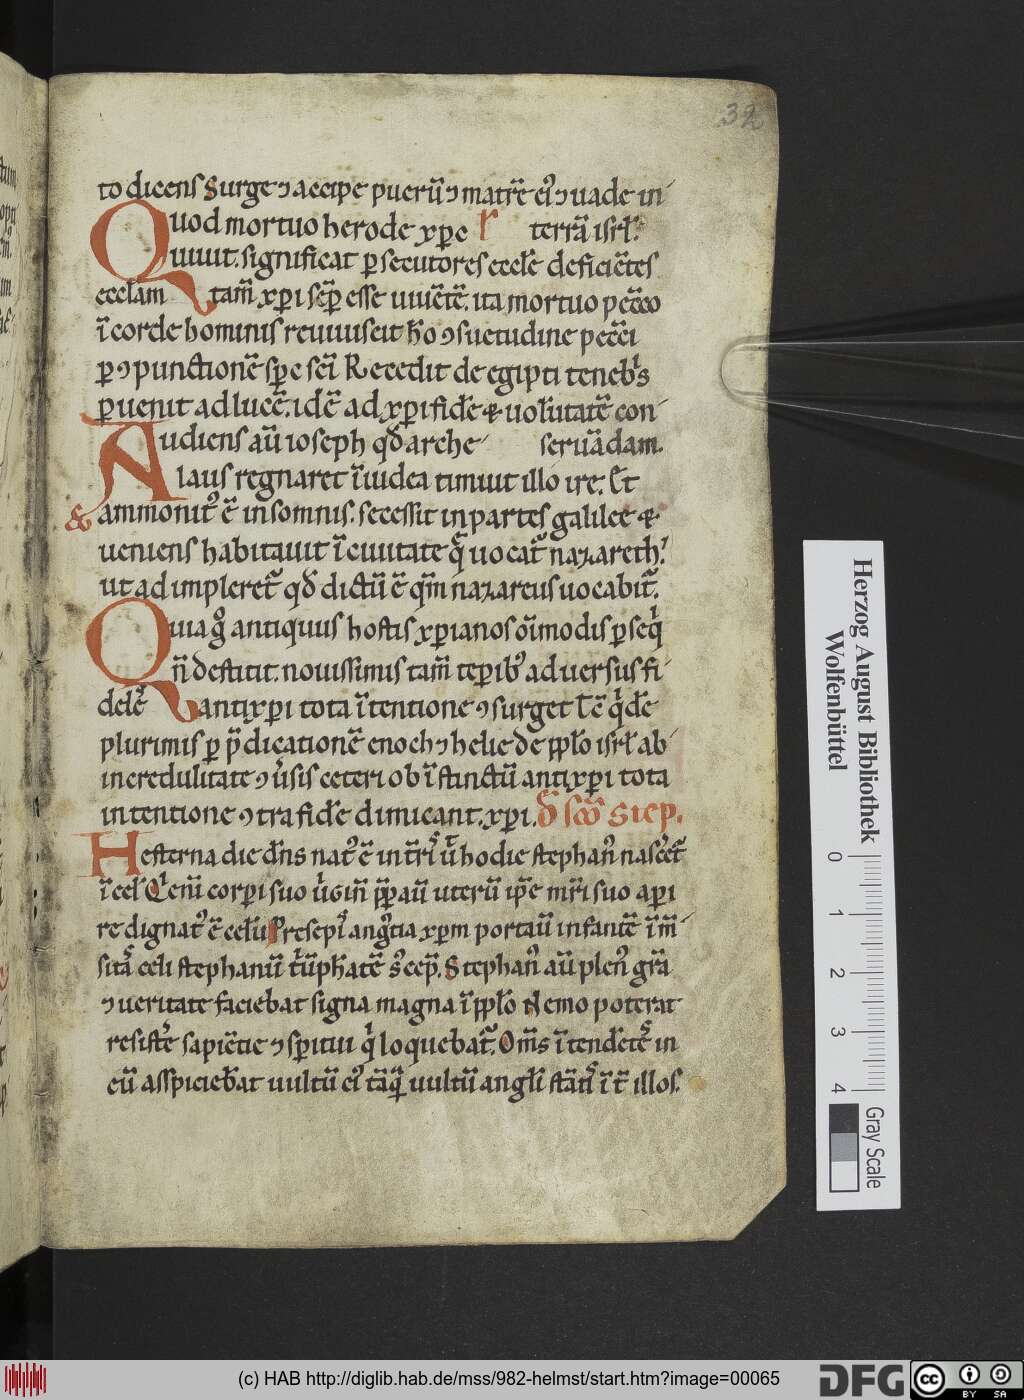 32
to dicens Surge ⁊ accipe pueru̅ ⁊ matre̅ ei᷒ ⁊ uade in
Quod mortuo herode xp̅c terra̅ isrl̅.
Quiuit. significat p̲secutores eccle̅ deficie̅tes
eccl̅am tam̅ xp̅i sep̅ esse uiue̅te̅. ita mortuo pecc̅o
i̅ corde hominis reuiuiscit ho̅ ꝯsuetudine pecc̅i
p̲ ꝯpunctione̅ sp̅c sc̅i Recedit de egipti teneb̅s
p̲uenit ad luce̅. ide̅ ad xp̅i fide̅ & uolu̅tate̅ con-
Audiens au̅ ioseph qd̅ arche serua̅dam.
laus regnaret i̅ iudea timuit illo ire. Et
& ammonit᷒ e̅ in somnis. secessit in partes galilee &
ueniens habitauit i̅ ciuitate q̅ uocat᷑ nazareth.
ut adimpleret᷑ qd̅ dictu̅ e̅ qm̅ nazareus uocabit᷑.
Quia g̊ antiquus hostis xp̅ianos oi̅modis p̲seq̅
n̅ destitit. nouissimis tam̅ tep̅ib᷒ aduersus fi-
dele̅ antixp̅i tota i̅tentione ꝯsurget
plurimis p̲ p̅dicatione̅ enoch ⁊ helie de pp̅lo isrl̅ ab
incredulitate ꝯu̅sis ceteri ob i̅stinctu̅ antixp̅i tota
intentione ꝯtra fide̅ dimicant. xp̅i. D̅ sc̅o Step.
Hesterna die dn̅s nat᷒ e̅ in tr̅i u̅ hodie stephan᷒ nascet᷑
i̅ cel corp̅i suo uterū ip̅e mr̅i suo ap̅i
re dignat᷒ e̅ celu̅ Presepi̅ ang᷒tia xp̅m portau̅ infante̅ i̅m̅-
sita̅ celi stephanu̅ t᷑u̅phate̅ s᷒cep̅. Stephan᷒ au̅ plen᷒ gr̅a
⁊ ueritate faciebat signa magna i̅ pp̅lo Nemo poterat
resist᷑e sapie̅tie ⁊ sp̅itui q̅ loquebat᷑. Om̅s i̅tende̅te̅ in
eu̅ asspicieba̅t uultu̅ ei᷒ ta̅q̅ uultu̅ angl̅i sta̅t᷒ i̅t᷑ illos.
Herzog August Bibliothek
Wolfenbüttel
0 1 2 3 4
Gray Scale
(c) HAB http://diglib.hab.de/mss/982-helmst/start.htm?image=00065
DFG
cc BY SA